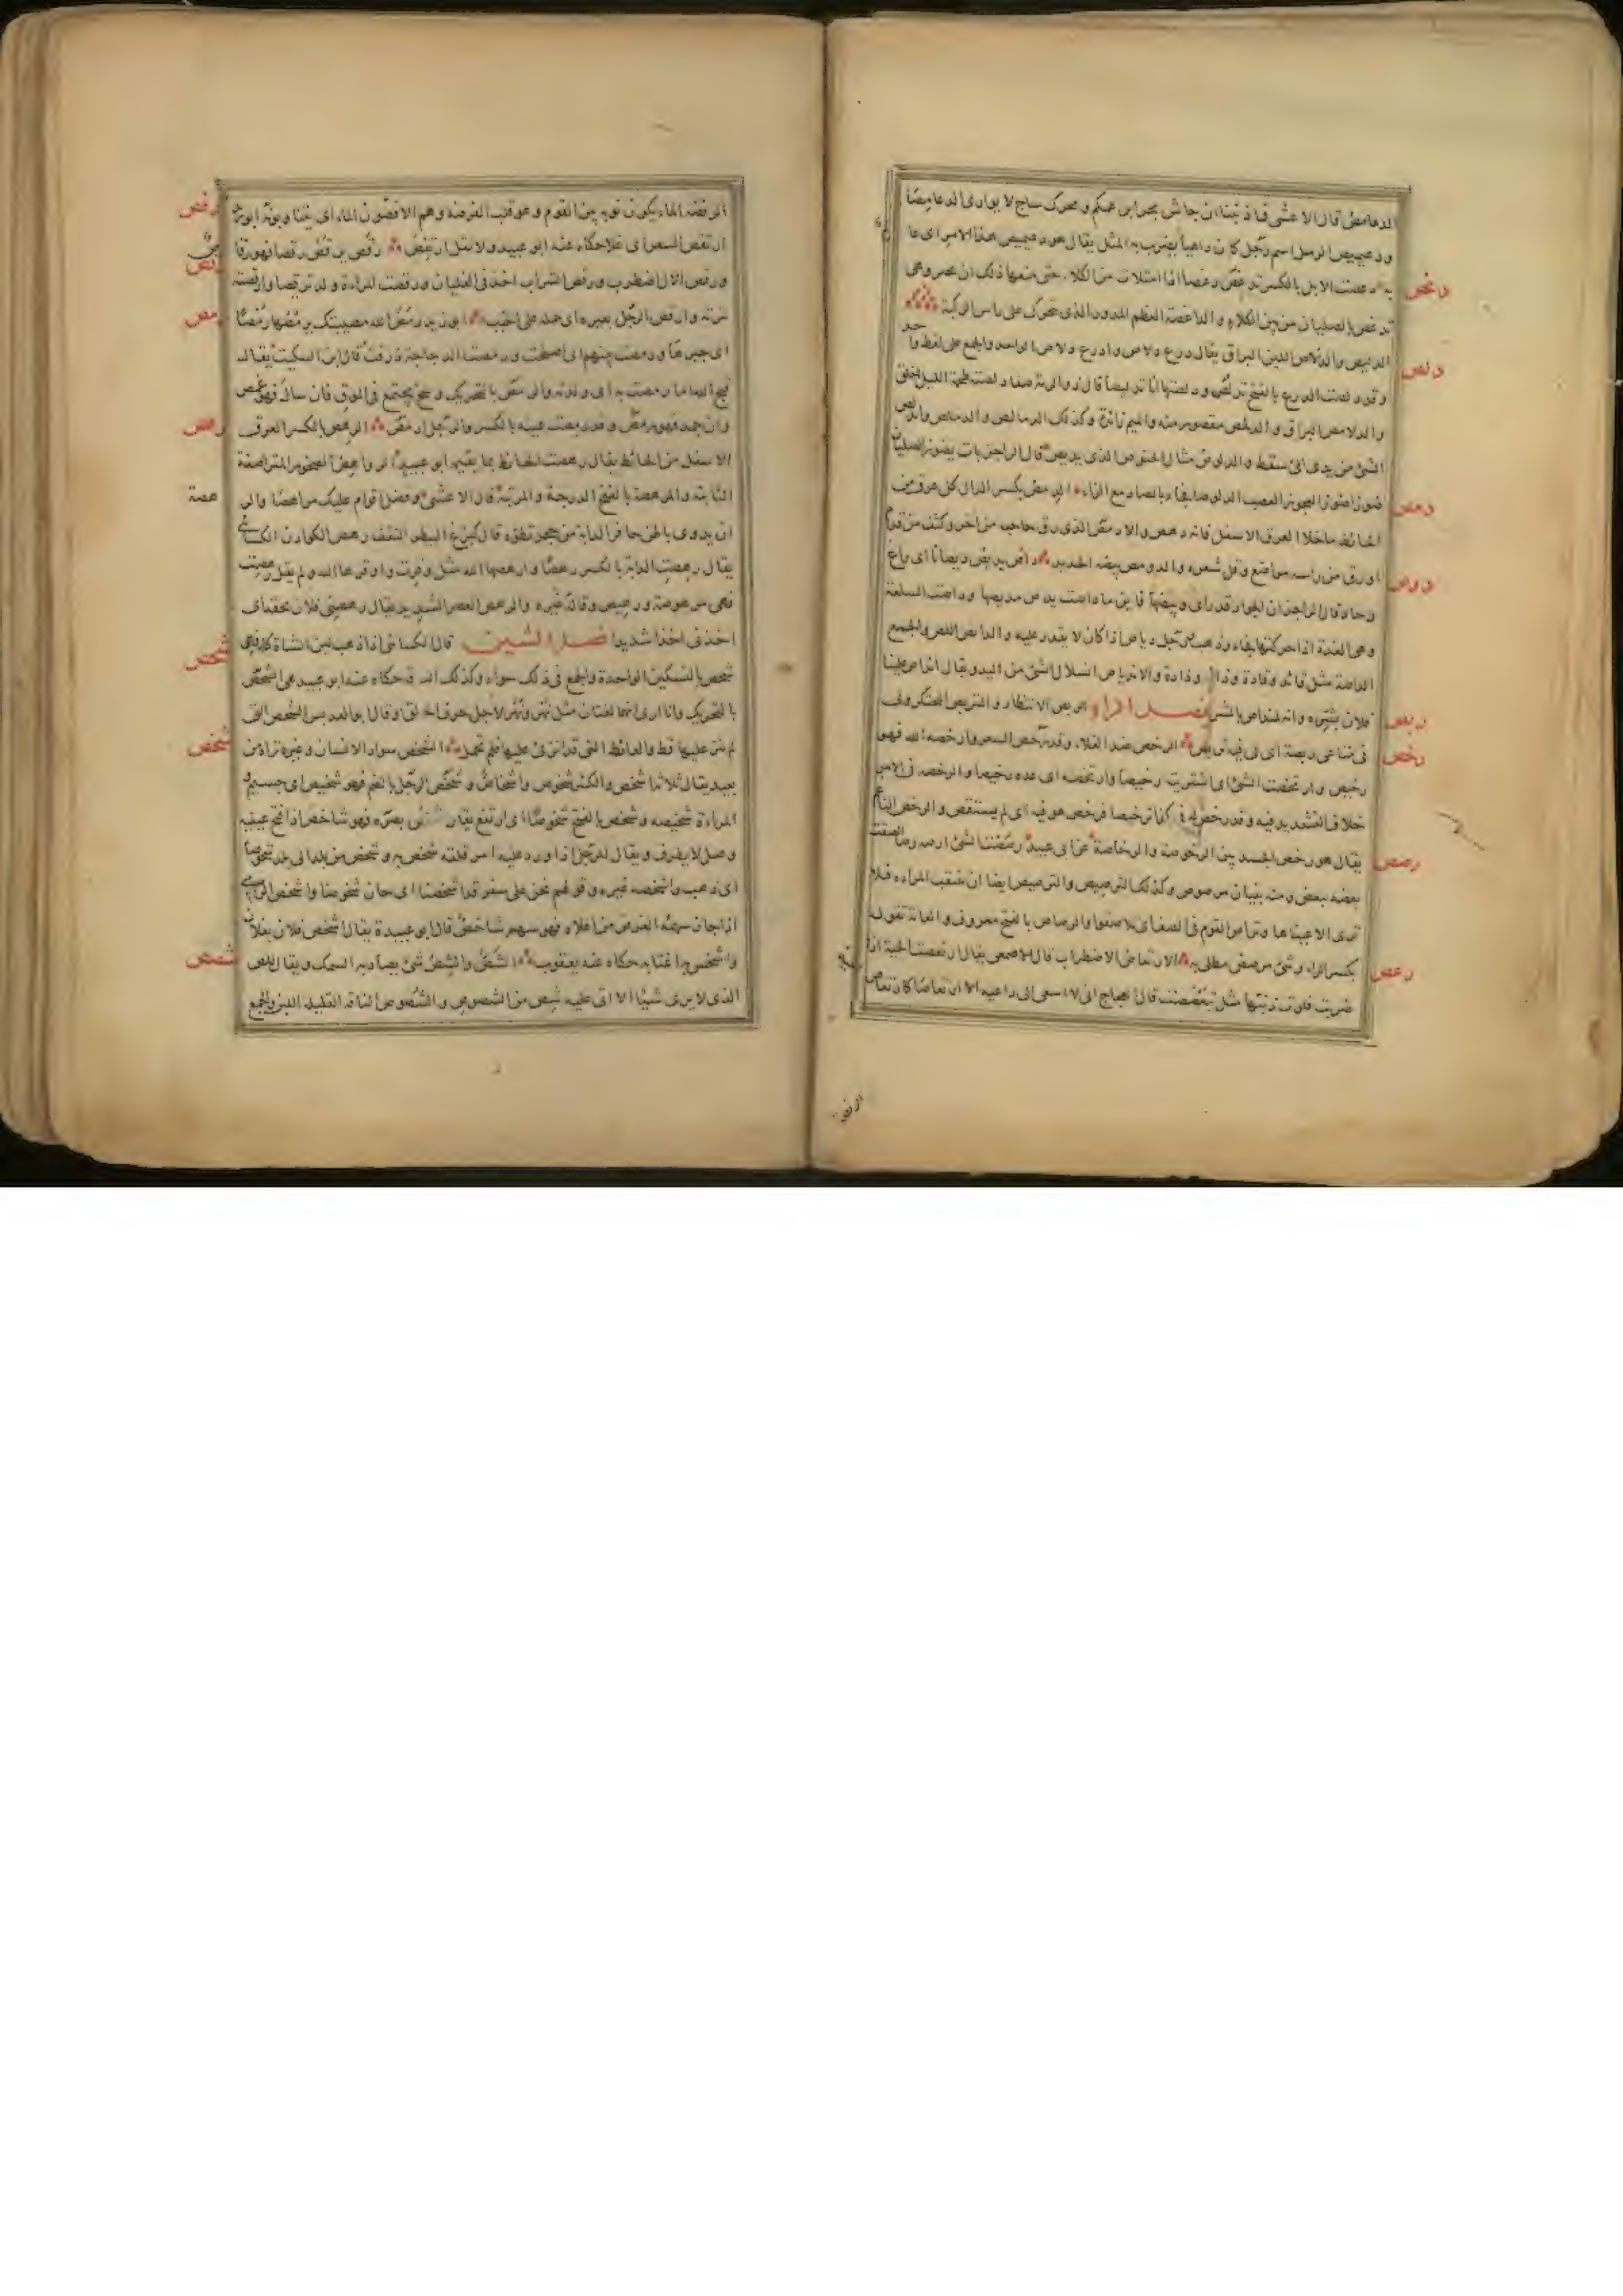 الدعامص قال الاعشى فا ذنبنا ان جاش بحر ابن عمكم وبحرك ساج لا يوارى الدعامصا
ودعيميص الرمل اسم رجل كان داهيا يضرب به المثل يقال هو دعيميص هذا الامر اى عا
دغص
به دغصت الابل بالكسر تدغص دغصا اذا امتلات من الكلاء حتى منعها ذلك ان تجر وهى
تدغص بالصليان من بين الكلاء والداغصة العظم المدور الذى يتحرك على راس الركبة
دلص
الدليص والدلاص اللين البراق يقال درع دلاص وادرع دلاص الواحد والجمع على لفظ واحد
وقد دلصت الدرع بالفتح تدلص ودلصتها انا تدليصا قال ذو الرمة صفا دلصته طحمة السيل اخلق
والدلامص البراق والدلمص مقصور منه والميم زائدة وكذلك الدمالص والدملص واندلص
الشئ من يدى اى سقط والدلوص مثال الخنوص الذى يديص قال الراجز بات يضوز الصليان
دمص
ضوزا ضوز العجوز العصب الدلوصا فجاء بالصاد مع الزاء الدمص بكسر الدال كل عرق من
الحائط ماخلا العرق الاسفل فانه رهص والادمص الذى رق حاجبه من اخر وكثف من قدم
ديص
او رق من راسه مواضع وقل شعره والدومص بيضة الحديد داص يديص ديصانا اى راغ
وحاد قال الراجز ان الجواد قد راى وبيصها فاينما داصت يدص مديصها وداصت السلعة
وهى الغدة اذا حركتها فجاءت وذهبت رجل دياص اذا كان لا يقدر عليه والدايص اللص والجمع
الداصة مثل قائد وقادة وذائد وذادة والاندياص انسلال الشئ من اليد ويقال انداص علينا
ربص
فلان بشره وانه لمنداص بالشر فصل الراء التربص الانتظار والمتربص المحتكر ولى
رخص
فى متاعى ربصة اى لى فيه تربص الرخص ضد الغلاء وقد رخص السعر وارخصه الله فهو
رخيص وارتخصت الشئ اى اشتريت رخيصا وارتخصه اى عده رخيصا والرخصة فى الامر
خلاف التشديد فيه وقد رخص له فى كذا ترخيصا فترخص هو فيه اى لم يستقص والرخص الناعم
رصص
يقال هو رخص الجسد بين الرخوصة والرخاصة عن ابى عبيد رصصت الشئ ارصه رصا الصقت
بعضه ببعض ومنه بنيان مرصوص وكذلك الترصيص والترصيص ايضا ان تنتقب المراءة فلا
ترى الا عيناها وتراص القوم فى الصف اى تلاصقوا والرصاص بالفتح معروف والعامة تقوله
رعص
بكسر الراء وشئ مرصص مطلى به الارتعاص الاضطراب قال الاصمعى يقال ارتعصت الحية اذا
ضربت فلوت ذنبها مثل تبعصصت قال العجاج انى لا اسعى الى داعيه الا ارتعاصا كارتعاص
رفص
الرفصة الماء يكون نوبة بين القوم وهو قلب الفرصة وهم يترافصون الماء اى
ارتفص السعر اى غلا حكاه عنه ابو عبيد ولا تقل ارتقص رقص يرقص رقصا فهو رقاص
رقص
ورقص الال اضطرب ورقص الشراب اخذ فى الغليان ورقصت المراءة ولدها ترقيصا وارقصته
رمص
نزته وارقص الرجل بعيره اى حمله على الخبب ابو زيد رمص الله مصيبتك يرمصها رمصا
اى جبرها ورمصت بينهم اى اصلحت ورمصت الدجاجة ذرقت قال ابن السكيت يقال
قبح الله اما رمصت به اى ولدته والرمص بالتحريك وسخ يجتمع فى الموق فان سال فهو غمص
رهص
وان جمد فهو رمص وقد رمصت عينه بالكسر والرجل ارمص الرهص بالكسر العرق
الاسفل من الحائط يقال رهصت الحائط بما يقيمه ابو عبيد الرواهص الصخور المتراصفة
هصة
الثابتة والمرهصة بالفتح الدرجة والمرتبة قال الاعشى وفضل اقوام عليك مراهصا والر
ان يدوى باطن حافر الدابة من حجر تطؤه قال كبزغ البيطر الثقف رهص الكوادن الكسائى
يقال رهصت الدابة بالكسر رهصا وارهصها الله مثل وقرت واوقرها الله ولم يقل رهصت
فهى مرهوصة ورهيص وقاله غيره والرهص العصر الشديد يقال رهصنى فلان بحقه اى
شحص
اخذنى اخذا شديدا فصل الشين قال الكسائى اذا ذهب لبن الشاة كله فهى
شحص بالتسكين الواحدة والجمع فى ذلك سواء وكذلك الناقة حكاه عنه ابو عبيد هى الشحص
بالتحريك وانا ارى انهما لغتان مثل نهر ونهر لاجل حرف الحلق وقال ابو العدبس الشحص التى
شخص
لم ينز عليها قط والعائط التى قد انزى عليها فلم تحمل الشخص سواد الانسان وغيره تراه من
بعيد يقال ثلاثة اشخص والكثير شخوص واشخاص وشخص الرجل بالضم فهو شخيص اى جسيم
المراءة شخيصة وشخص بالفتح شخوصا اى ارتفع يقال شخص بصره فهو شاخص اذا فتح عينيه
وجعل لا يطرف ويقال للرجل اذا ورد عليه امر قلقه شخص به وشخص من بلد الى بلد شخوصا
اى ذهب واشخصه غيره وقولهم نحن على سفر قد اشخصنا اى حان شخوصنا واشخص الرامى
اذا جاز سهمه الغرض من اعلاه فهو سهم شاخص قال ابو عبيدة يقال اشخص فلان بفلان
شصص
واشخس به اذا اغتابه حكاه عنه يعقوب الشص والشص شئ يصاد به السمك ويقال للص
الذى لا يرى شيئا الا اتى عليه شص من الشصوص والشصوص الناقة القليلة اللبن والجمع